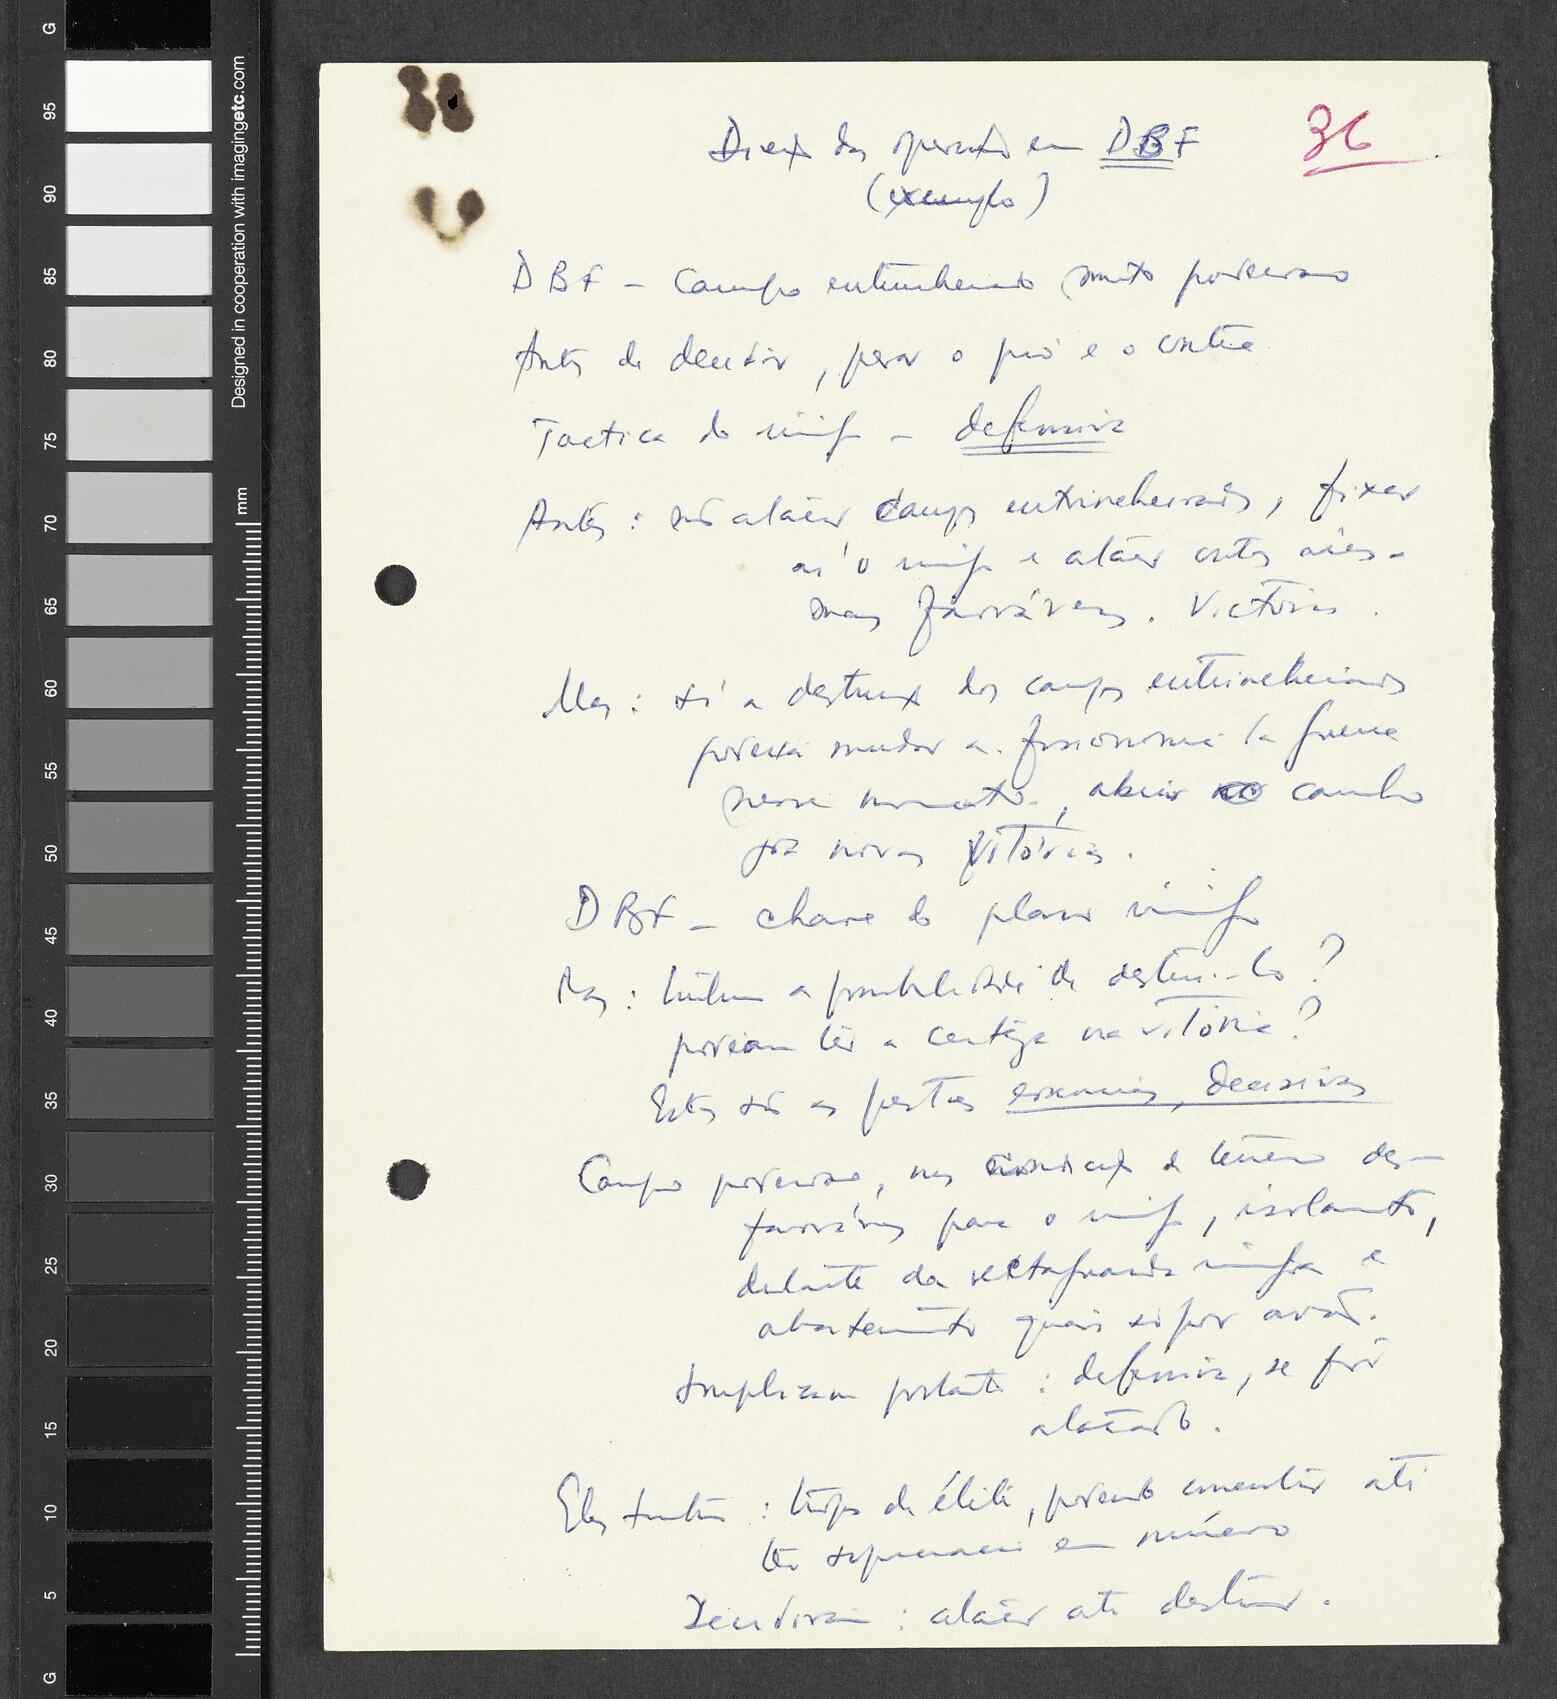 Direcç das operações em DBF
36
(exemplo)
DBF – Campo entrincheirado muito poderoso
Antes de decidir, pesar o pró e o contra
Tactica do inimº – defensiva
Antes: não atacar campos entrincheirados, fixar
aí o inimº e atacar outras
mais favoráveis. Victórias.
Mas: só a destruiç dos campos entrincheirados
poderia mudar a fisionomia da guerra
nesse momento, abrir caminho
pra novas vitórias.
DBF – chave do plano inimº
Mas: tinham a possibilidade de destrui-lo?
podiam ter a certeza na vitória?
Estas são as essenciais, decisivas
Campo poderoso, mas condicç de terreno des-
favoráveis para o inimº, isolamento,
distante da rectaguarda inimiga e
abastecimento quasi só por avião.
portanto: defensiva, se fôr
atacado.
Eles tinham: tropas de élite, podendo concentrar até
ter superioridade em número
Decidiram: atacar até destruir.
Designed in cooperation with imagingetc.com
mm
G
95
90
85
80
75
70
65
60
55
50
45
40
35
30
25
20
15
10
5
G